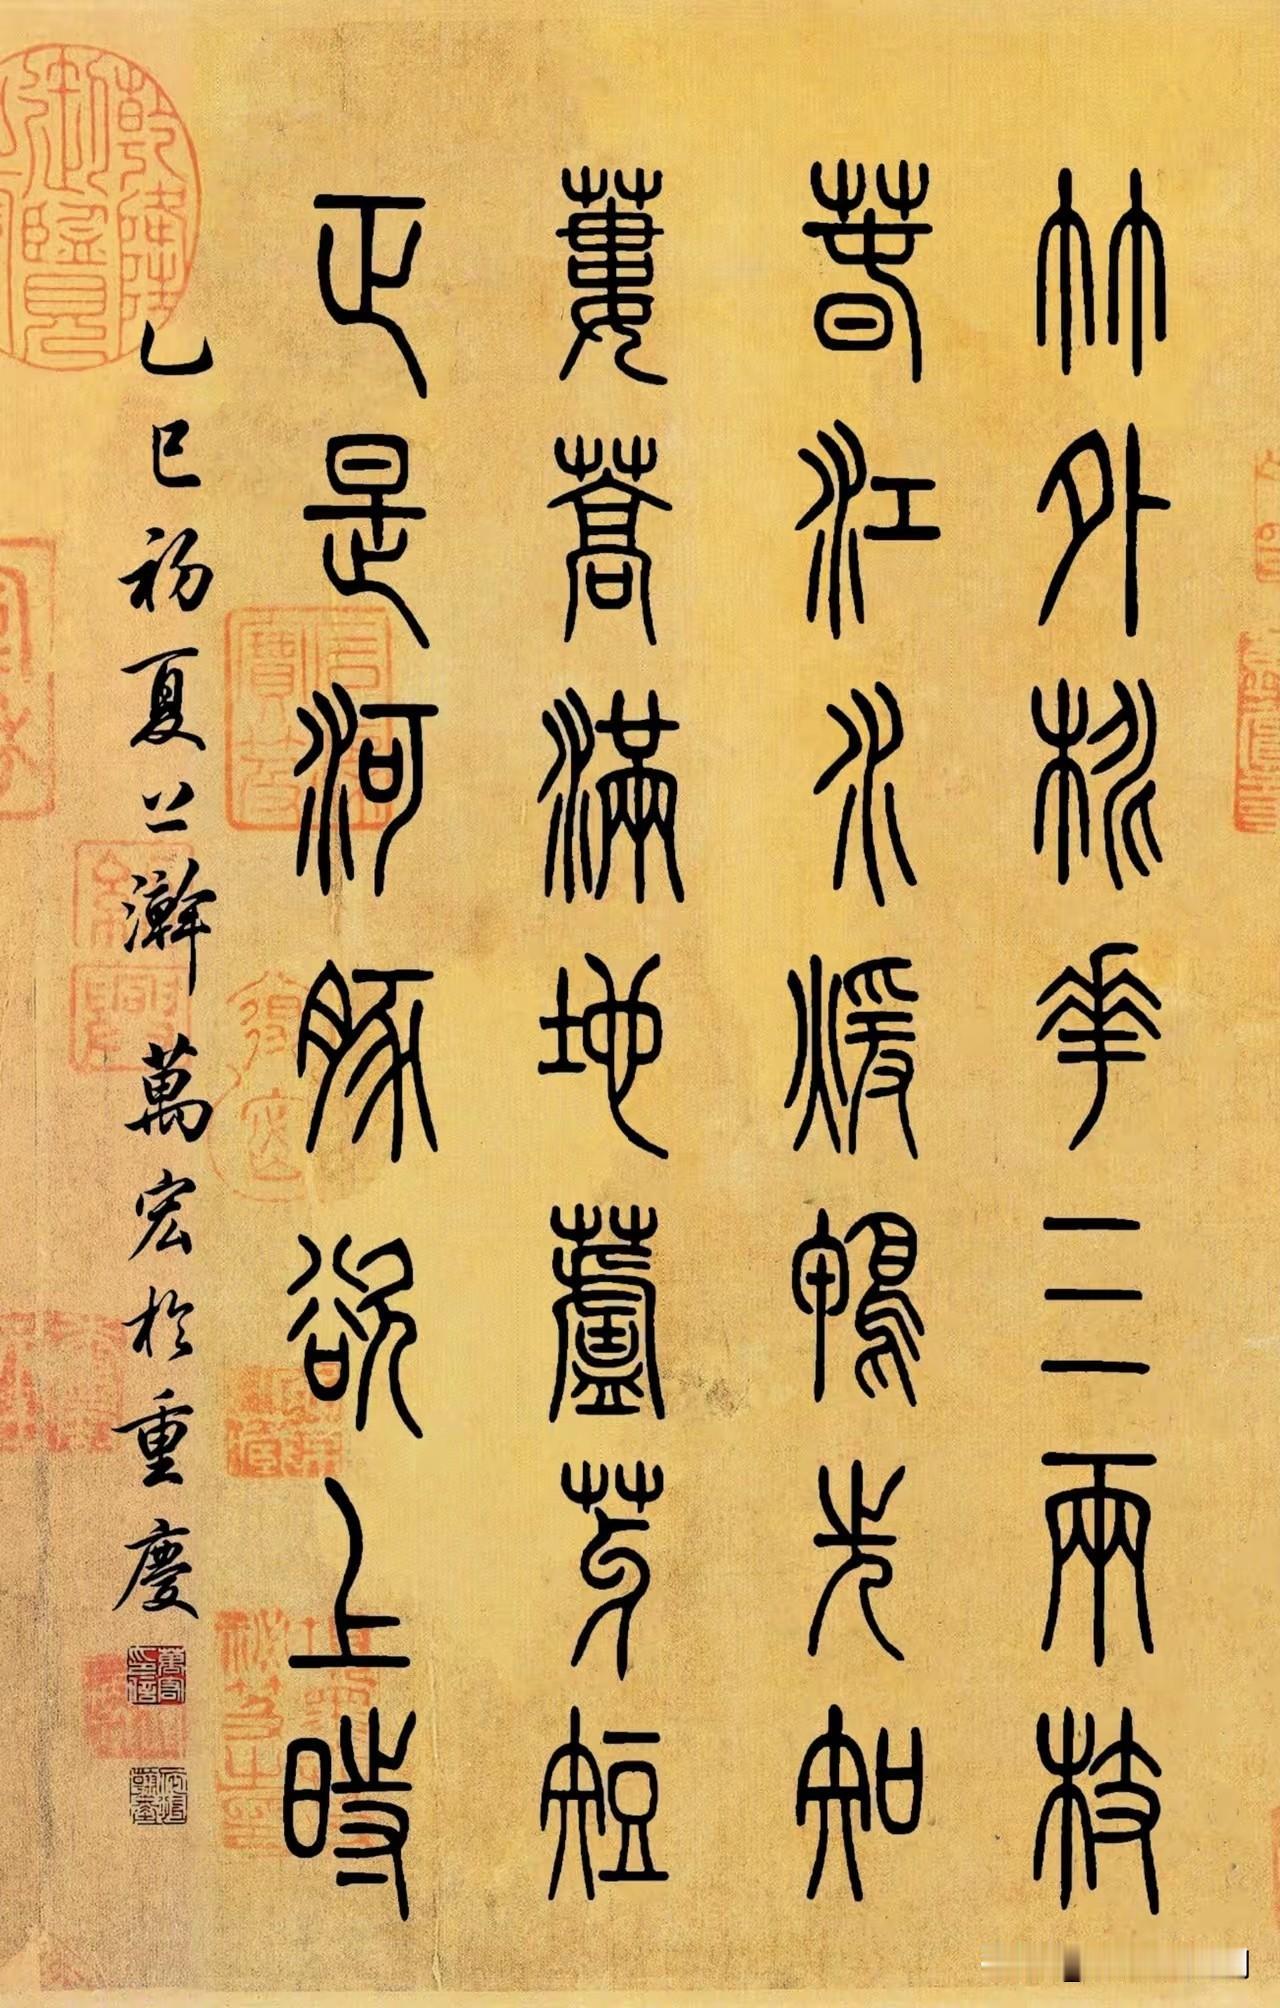 竹外桃花三兩枝
春江水煖鴨先知
蔞蒿滿地蘆芽短
正是河豚欲上時
乙巳初夏上澣萬宏於重慶